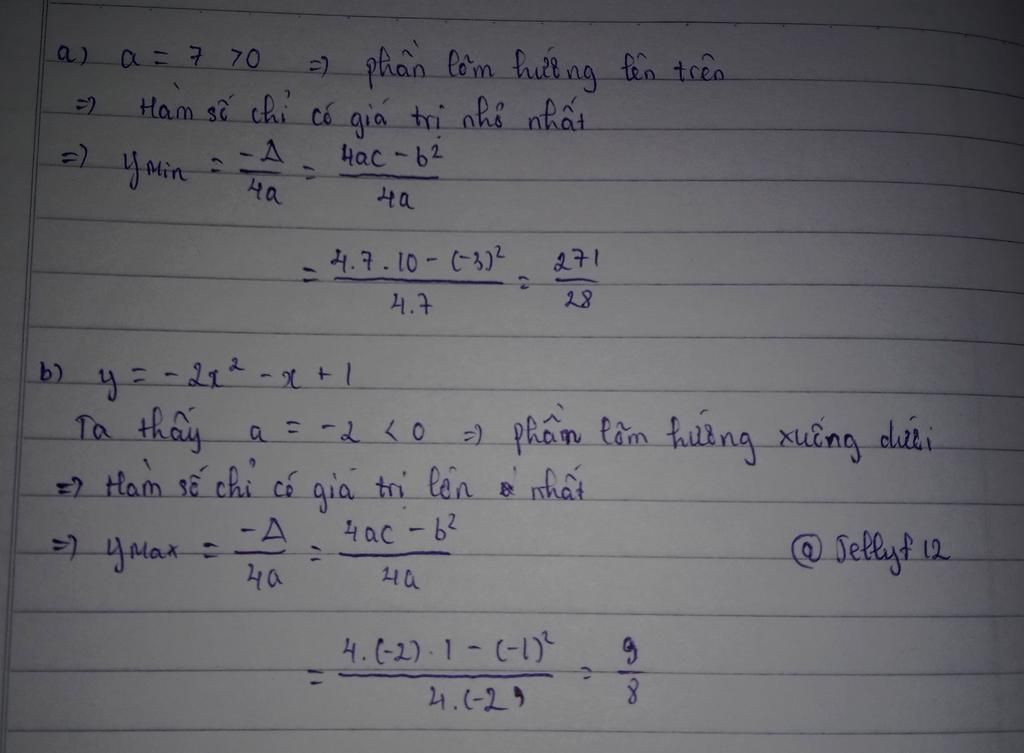 a) a = 7 > 0 => phần lõm hướng lên trên
=> Hàm số chỉ có giá trị nhỏ nhất
=> yMin = -Δ/4a = (4ac - b²)/4a
= (4.7.10 - (-3)²)/4.7 = 271/28
b) y = -2x² - x + 1
Ta thấy a = -2 < 0 => phần lõm hướng xuống dưới
=> Hàm số chỉ có giá trị lớn nhất
=> yMax = -Δ/4a = (4ac - b²)/4a
@Jellyf12
= (4.(-2).1 - (-1)²)/4.(-2) = 9/8